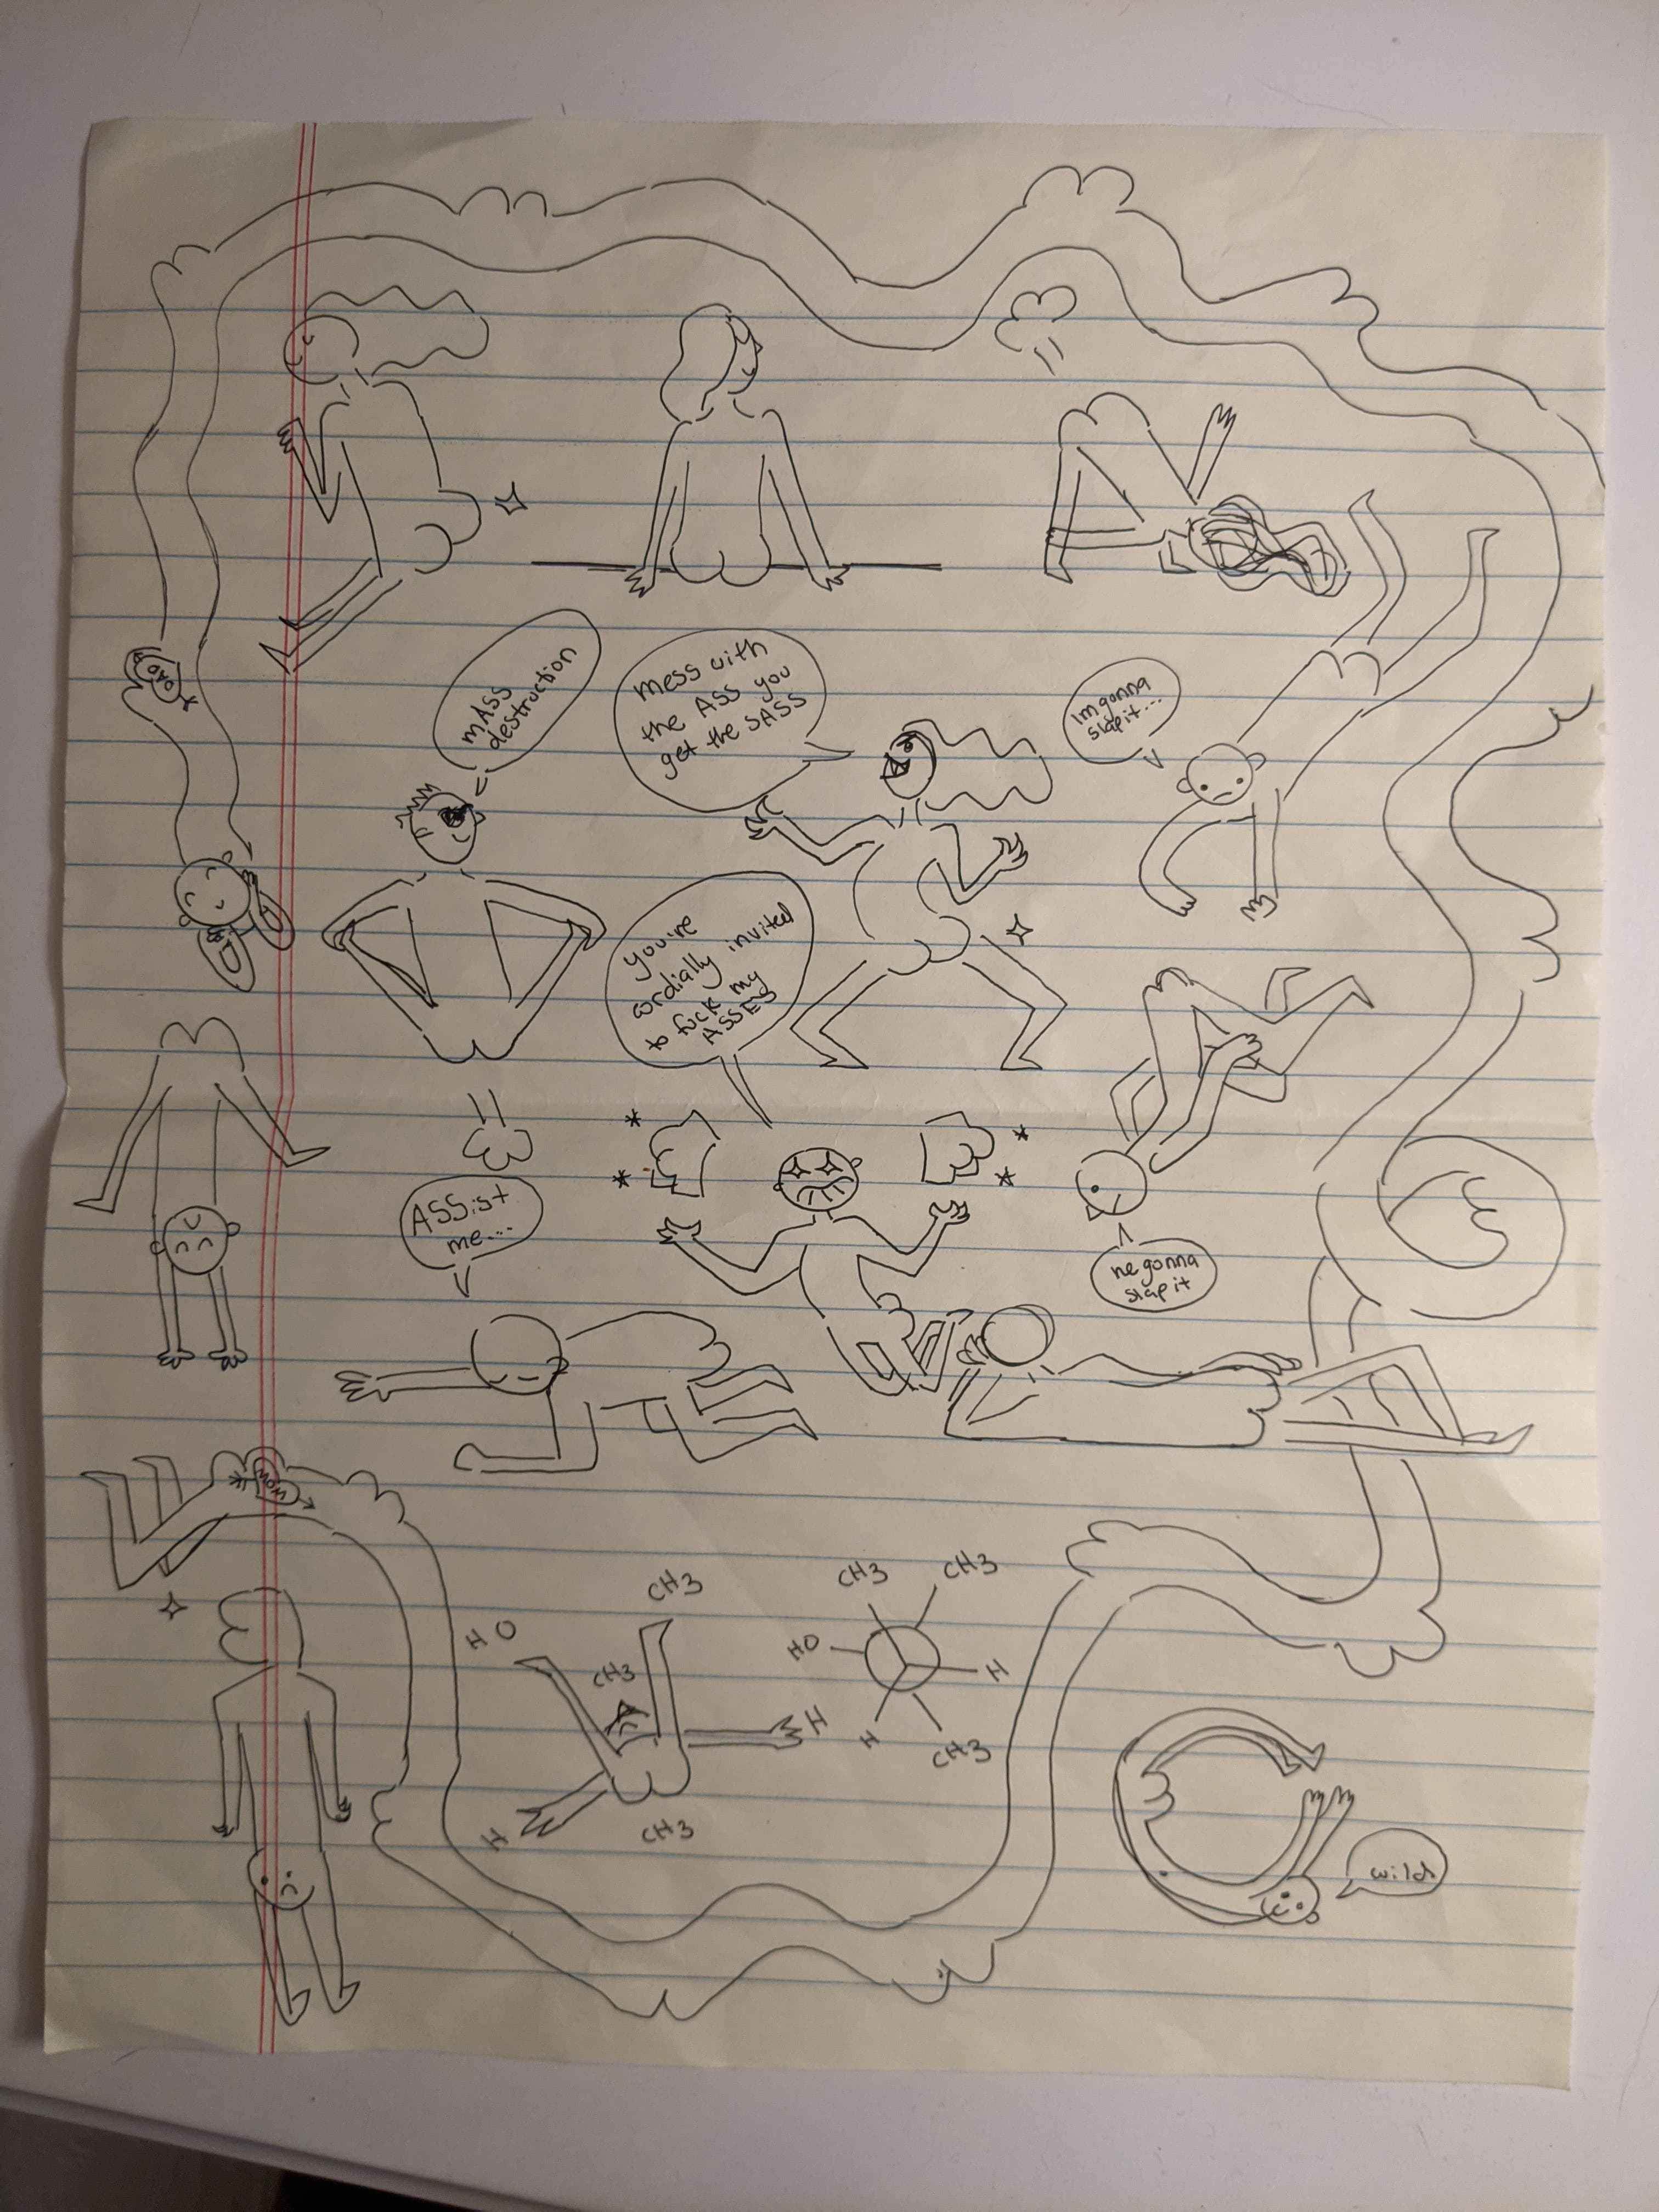 mASS
destruction
mess with
the ASS you
get the SASS
Im gonna
slap it...
DAD
you're
cordially invited
to fuck my
ASSES
ASSist
me...
he gonna
slap it
WOW
CH3
HO
CH3
H
H
CH3
CH3
CH3
HO
H
H
CH3
wild